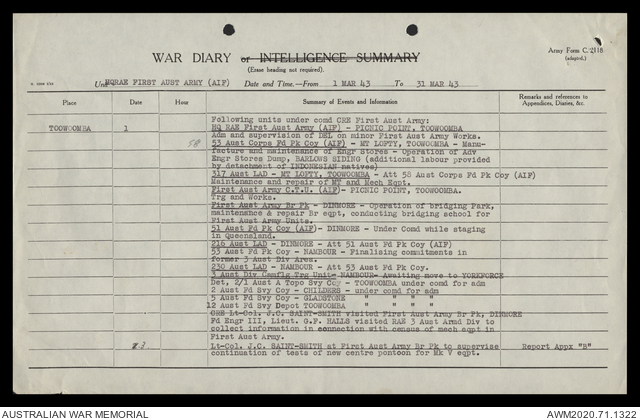 Army Form C. 2118
(Adapted.)
WAR DIARY or INTELLIGENCE SUMMARY
(Erase heading not required).
Unit HQRAE FIRST AUST ARMY (AIF) Date and Time.—From 1 MAR 43 To 31 MAR 43
Place Date Hour Summary of Events and Information Remarks and references to Appendices, Diaries, &c.
Following units under comd CRE First Aust Army:
TOOWOOMBA 1 HQ RAE First Aust Army (AIF) - PICNIC POINT, TOOWOOMBA
Adm and supervision of DEL on minor First Aust Army Works.
53 Aust Corps Fd Pk Coy (AIF) - MT LOFTY, TOOWOOMBA - Manu-
58
facture and maintenance of Engr Stores - Operation of Adv
Engr Stores Dump, BARLOWS SIDING (additional labour provided
by detachment of INDONESIAN natives)
317 Aust LAD - MT LOFTY, TOOWOOMBA - Att 58 Aust Corps Fd Pk Coy (AIF)
Maintenance and repair of MT and Mech Eqpt.
First Aust Army C.T.U. (AIF)- PICNIC POINT, TOOWOOMBA.
Trg and Works.
First Aust Army Br Pk - DINMORE - Operation of bridging Park,
maintenance & repair Br eqpt, conducting bridging school for
First Aust Army Units.
51 Aust Fd Pk Coy (AIF)- DINMORE - Under Comd while staging
in Queensland.
216 Aust LAD - DINMORE - Att 51 Aust Fd Pk Coy (AIF)
53 Aust Fd Pk Coy - NAMBOUR - Finalising commitments in
former 3 Aust Div Area.
230 Aust LAD - NAMBOUR - Att 53 Aust Fd Pk Coy.
3 Aust Div Camflg Trg Unit- NAMBOUR- Awaiting move to YORKFORCE
Det, 2/1 Aust A Topo Svy Coy - TOOWOOMBA under comd for adm
2 Aust Fd Svy Coy - CHILDERS - under comd for adm
5 Aust Fd Svy Coy - GLADSTONE " " " "
12 Aust Fd Svy Depot TOOWOOMBA " " " "
CRE Lt-Col. J.C. SAINT-SMITH visited First Aust Army Br Pk, DINMORE
Fd Engr III, Lieut. G.F. HALLS visited RAE 3 Aust Armd Div to
collect information in connection with census of mech eqpt in
First Aust Army.
3 Lt-Col. J.C. SAINT-SMITH at First Aust Army Br Pk to supervise Report Appx "B"
continuation of tests of new centre pontoon for Mk V eqpt.
AUSTRALIAN WAR MEMORIAL
AWM2020.71.1322